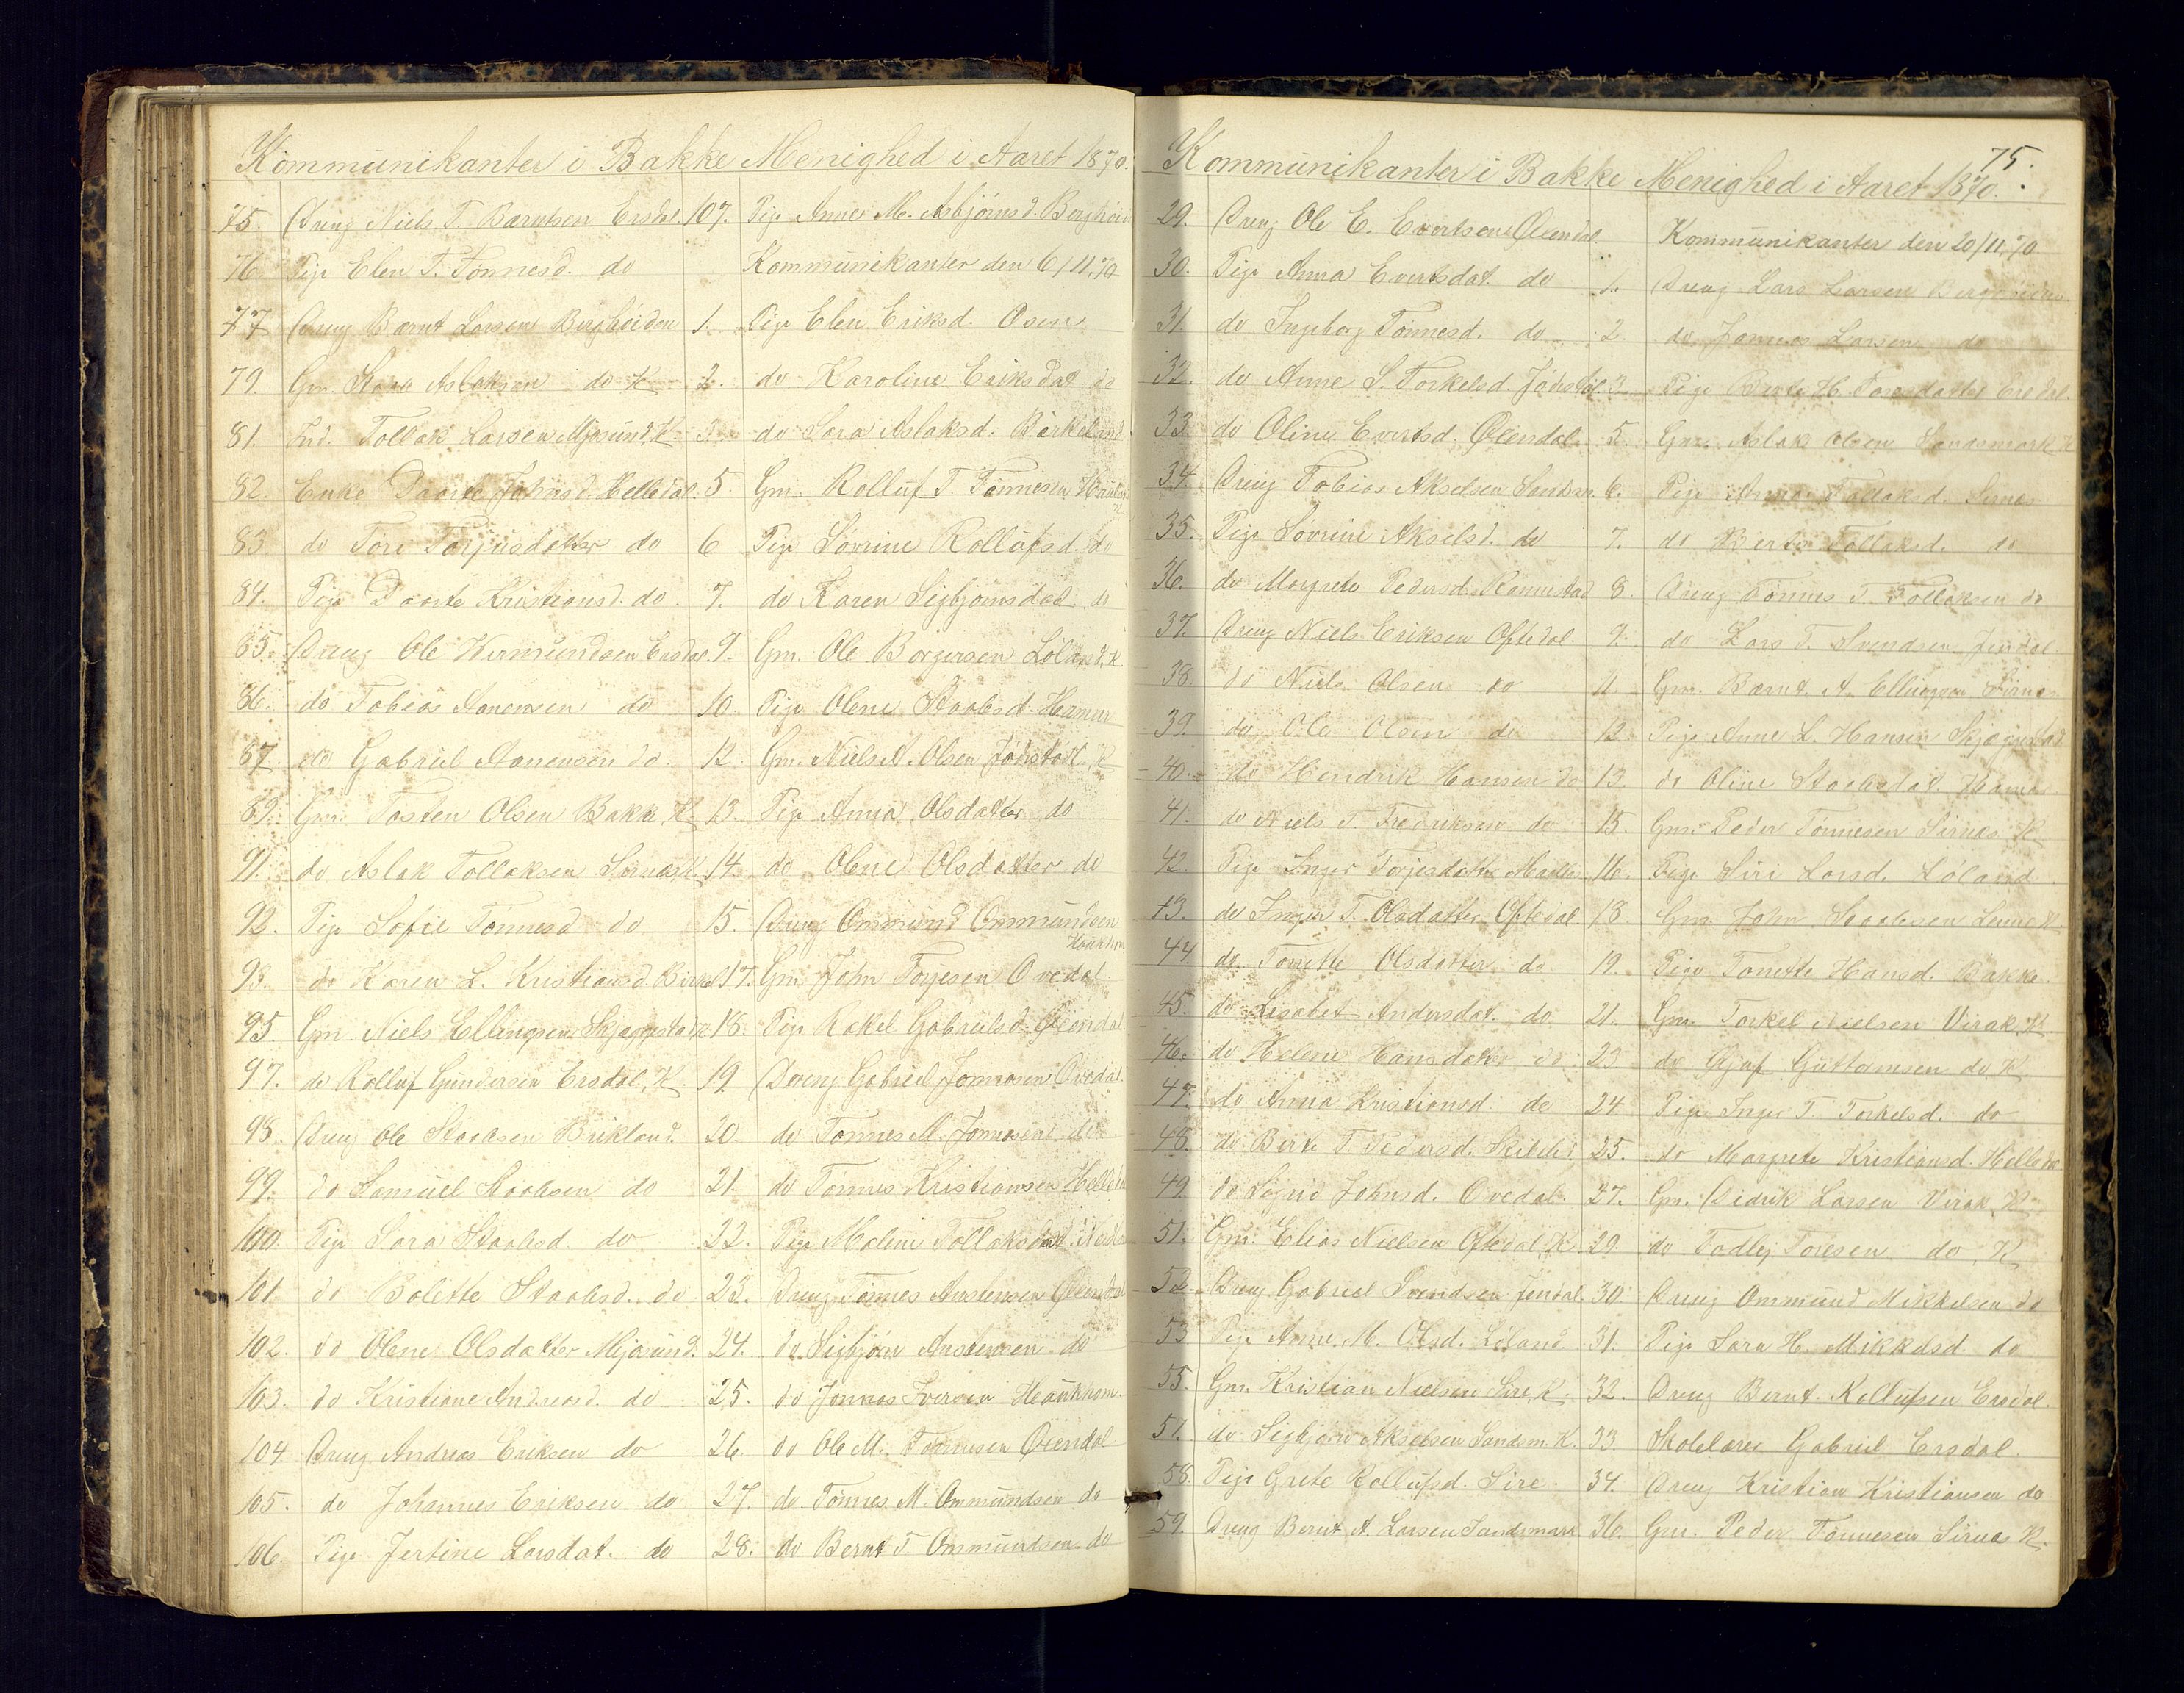 Kommunikanter i Bakke Menighed i Aaret 1870.
75. Dreng Niels T. Barntsen Ersdal.
76. Pige Elen T. Tönnesd. do
77. Dreng Barnt Larsen Berghöiden
79. Gm. Aslaksen do K
81. Tollak Larsen Mjosund, K.
82. Enke Johnsd. Helledal.
83. do Töre Torjusdatter do
84. Pige Daarte Kristiansd. do
85. Dreng Ole Hermundsen Ersdal.
86. do Tobias Aanensen do
87. do Gabriel Aanensen do
89. Gm. Tosten Olsen Bakke, K.
91. do Aslak Tollaksen Sirnæs, K
92. Pige Sofie Tönnesd do
93. do Karen L. Kristiansd. Birkel
95. Gm. Niels Ellingsen Skjaggestad K
97. do Rolluf Gundersen Ersdal, K.
98. Dreng Ole Staalesen Birkland
99. do Samuel Staalesen do
100. Pige Sara Staalesd. do
101. do Bolette Staalesd. do
102. do Olene Olsdatter Mjosund.
103. do Kristiane Andreasd. do
104 Dreng Andreas Eriksen do
105. do Johannes Eriksen do
106. Pige Jertine Larsdat. do
107. Pige Anne M. Asbjörnsd. Berghöid
Kommunikanter den 6/11,70
1. Pige Elen Eriksd. Osen
2. do Karoline Eriksdat do
3. do Sara Aslaksd. Birkeland
5. Gm. Rolluf T. Tönnesen
K
6 Pige Sövrine Rollufsd. do
7. do Karen Sigbjörnsdat. do
9. Gm. Ole Borgersen Löland, K
10. Pige Olene Staalesd. Hamar
12. Gm. Niels A. Olsen Jödestöl, K
13. Pige Anna Olsdatter do
14. do Olene Olsdatter do
15. Dreng Ommund Ommundsen
Haukhom
17. Gm. John Torjesen Ovedal.
18. Pige Rakel Gabrielsd. Öiendal.
19. Dreng Gabriel Jonnasen Ovedal.
20. do Tönnes M. Jonnasen do
21. do Tönnes Kristiansen Helledal
22. Pige Malene Tollaksdat.
23. Dreng Tönnes Anstensen Öiendal
24. do Sigbjörn Anstensen do
25. do Jonnas Iversen Haukhom.
26. do Ole M. Tönnesen Öiendal
27. do Tönnes M. Ommundsen do
28. do Bernt T Ommundsen do
75.
Kommunikanter i Bakke Menighed i Aaret 1870.
29. Dreng Ole E. Evertsen Öiendal.
30. Pige Anna Evertsdat. do
31. do Ingeborg Tönnesd. do
32. do Anne S. Torkelsd. Jödestöl.
33. do Oline Evertsd. Öiendal
34. Dreng Tobias Akselsen Sandsm.
35. Pige Sövrine Akselsd. do
36. do Margrete Pedersd. Ramnstad
37. Dreng Niels Eriksen Oftedal.
38. do Niels Olsen do
39. do Ole Olsen do
40. do Hendrik Hansen do
41. do Niels T. Fredriksen do
42. Pige Inger Torjesdatter
43. do Inger T. Olsdatter Oftedal
44 do Tonette Olsdatter do
45. do Lisabet Andersdat. do
46. do Helene Hansdatter do
47. do Anna Kristiansd. do
48. do Berte T. Pedersd.
49. do Sigrid Johnsd. Ovedal.
51. Gm. Elias Nielsen Oftedal, K
52. Dreng Gabriel Svendsen Jendal
53 Pige Anne M. Olsd. Löland
55. Gm. Kristian Nielsen Sire, K.
57. do Sigbjörn Akselsen Sandsm. K.
58. Pige Grete Rollufsd. Sire.
59. Dreng Bernt A. Larsen Sandsmark
Kommunikanter den 20/11,70
1. Dreng Lars Larsen Berghöiden
2. do Jonnas Larsen do
3. Pige Berte H. Ersdal.
5. Gm. Aslak Olsen Sandsmark K
6. Pige Anna Tollaksd. Sirnæs
7. do Berte Tollaksd. do
8. Dreng Tönnes T. Tollaksen do
9. do Lars T. Svendsen Jendal.
11. Gm. Barnt A. Ellingsen Sirnæs
12. Pige Anne L. Hansen Skjaggestad
13. do Oline Staalesdat. Hamar
15. Gm. Peder Tönnesen Sirnæs K
16. Pige Siri Larsd. Löland
18. Gm. John Staalesen K
19. Pige Tonette Hansd. Bakke.
21. Gm. Torkel Nielsen Virak, K
23. do Guttormsen do, K.
24 Pige Inger T. Torkelsd. do
25. do Margrete Kristiansd. Helledal
27. Gm. Didrik Larsen Virak, K
29. do Tadlej Toresen do, K
30. Dreng Ommund Mikkelsen do
31. Pige Sara H. Mikkelsd. do
32. Dreng Bernt Rollufsen Ersdal.
33. Skolelærer Gabriel Ersdal.
34. Dreng Kristian Kristiansen do
36. Gm. Peder Tönnesen Sirnæs K.